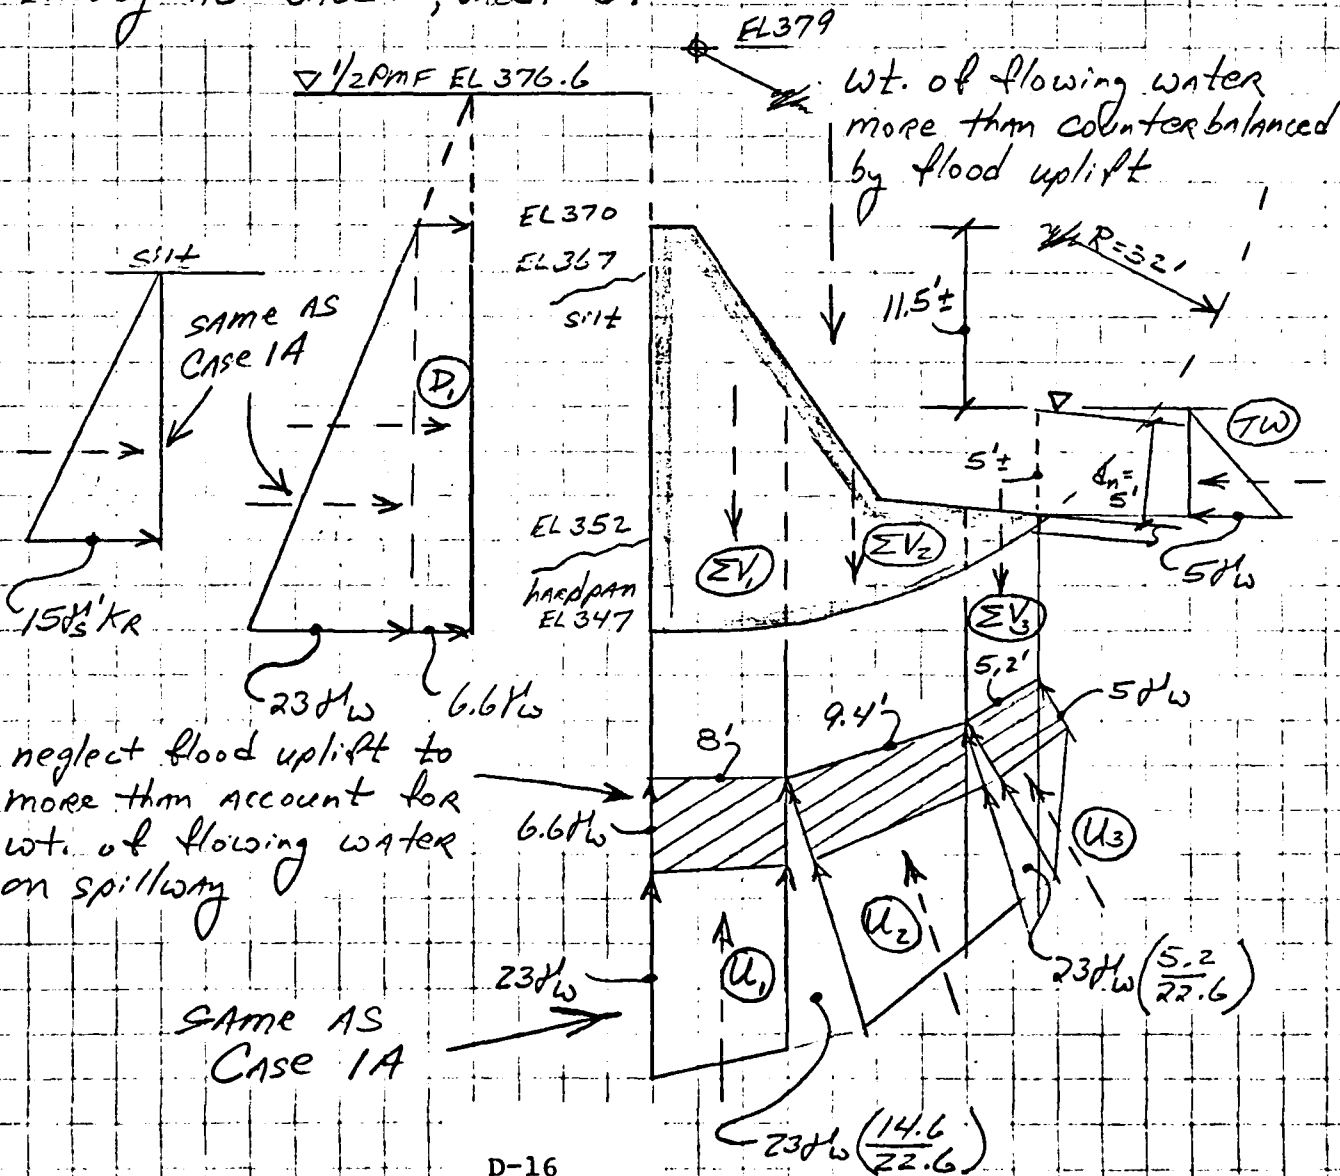 EL 379
▽ 1/2 PMF EL 376.6
wt. of flowing water
more than counterbalanced
by flood uplift
EL 370
EL 367
silt
silt
same as
Case 1A
D₁
R=32'
11.5'±
5'±
dn=
5'
TW
5γw
EL 352
hardpan
EL 347
ΣV₁
ΣV₂
ΣV₃
15γs'KR
23γw
6.6γw
5.2'
5γw
9.4'
8'
neglect flood uplift to
more than account for
wt. of flowing water
on spillway
6.6γw
U₃
U₂
U₁
23γw
23γw(5.2/22.6)
Same as
Case 1A
23γw(14.6/22.6)
D-16